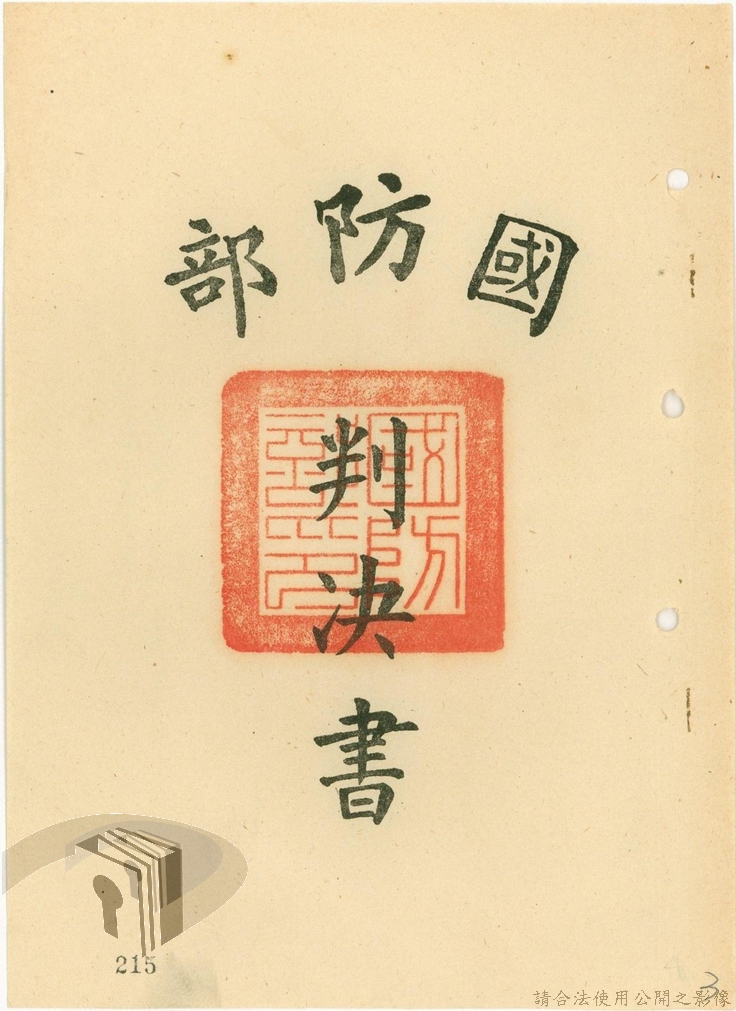 國防部
判決書
國防部印
215
3
請合法使用公開之影像